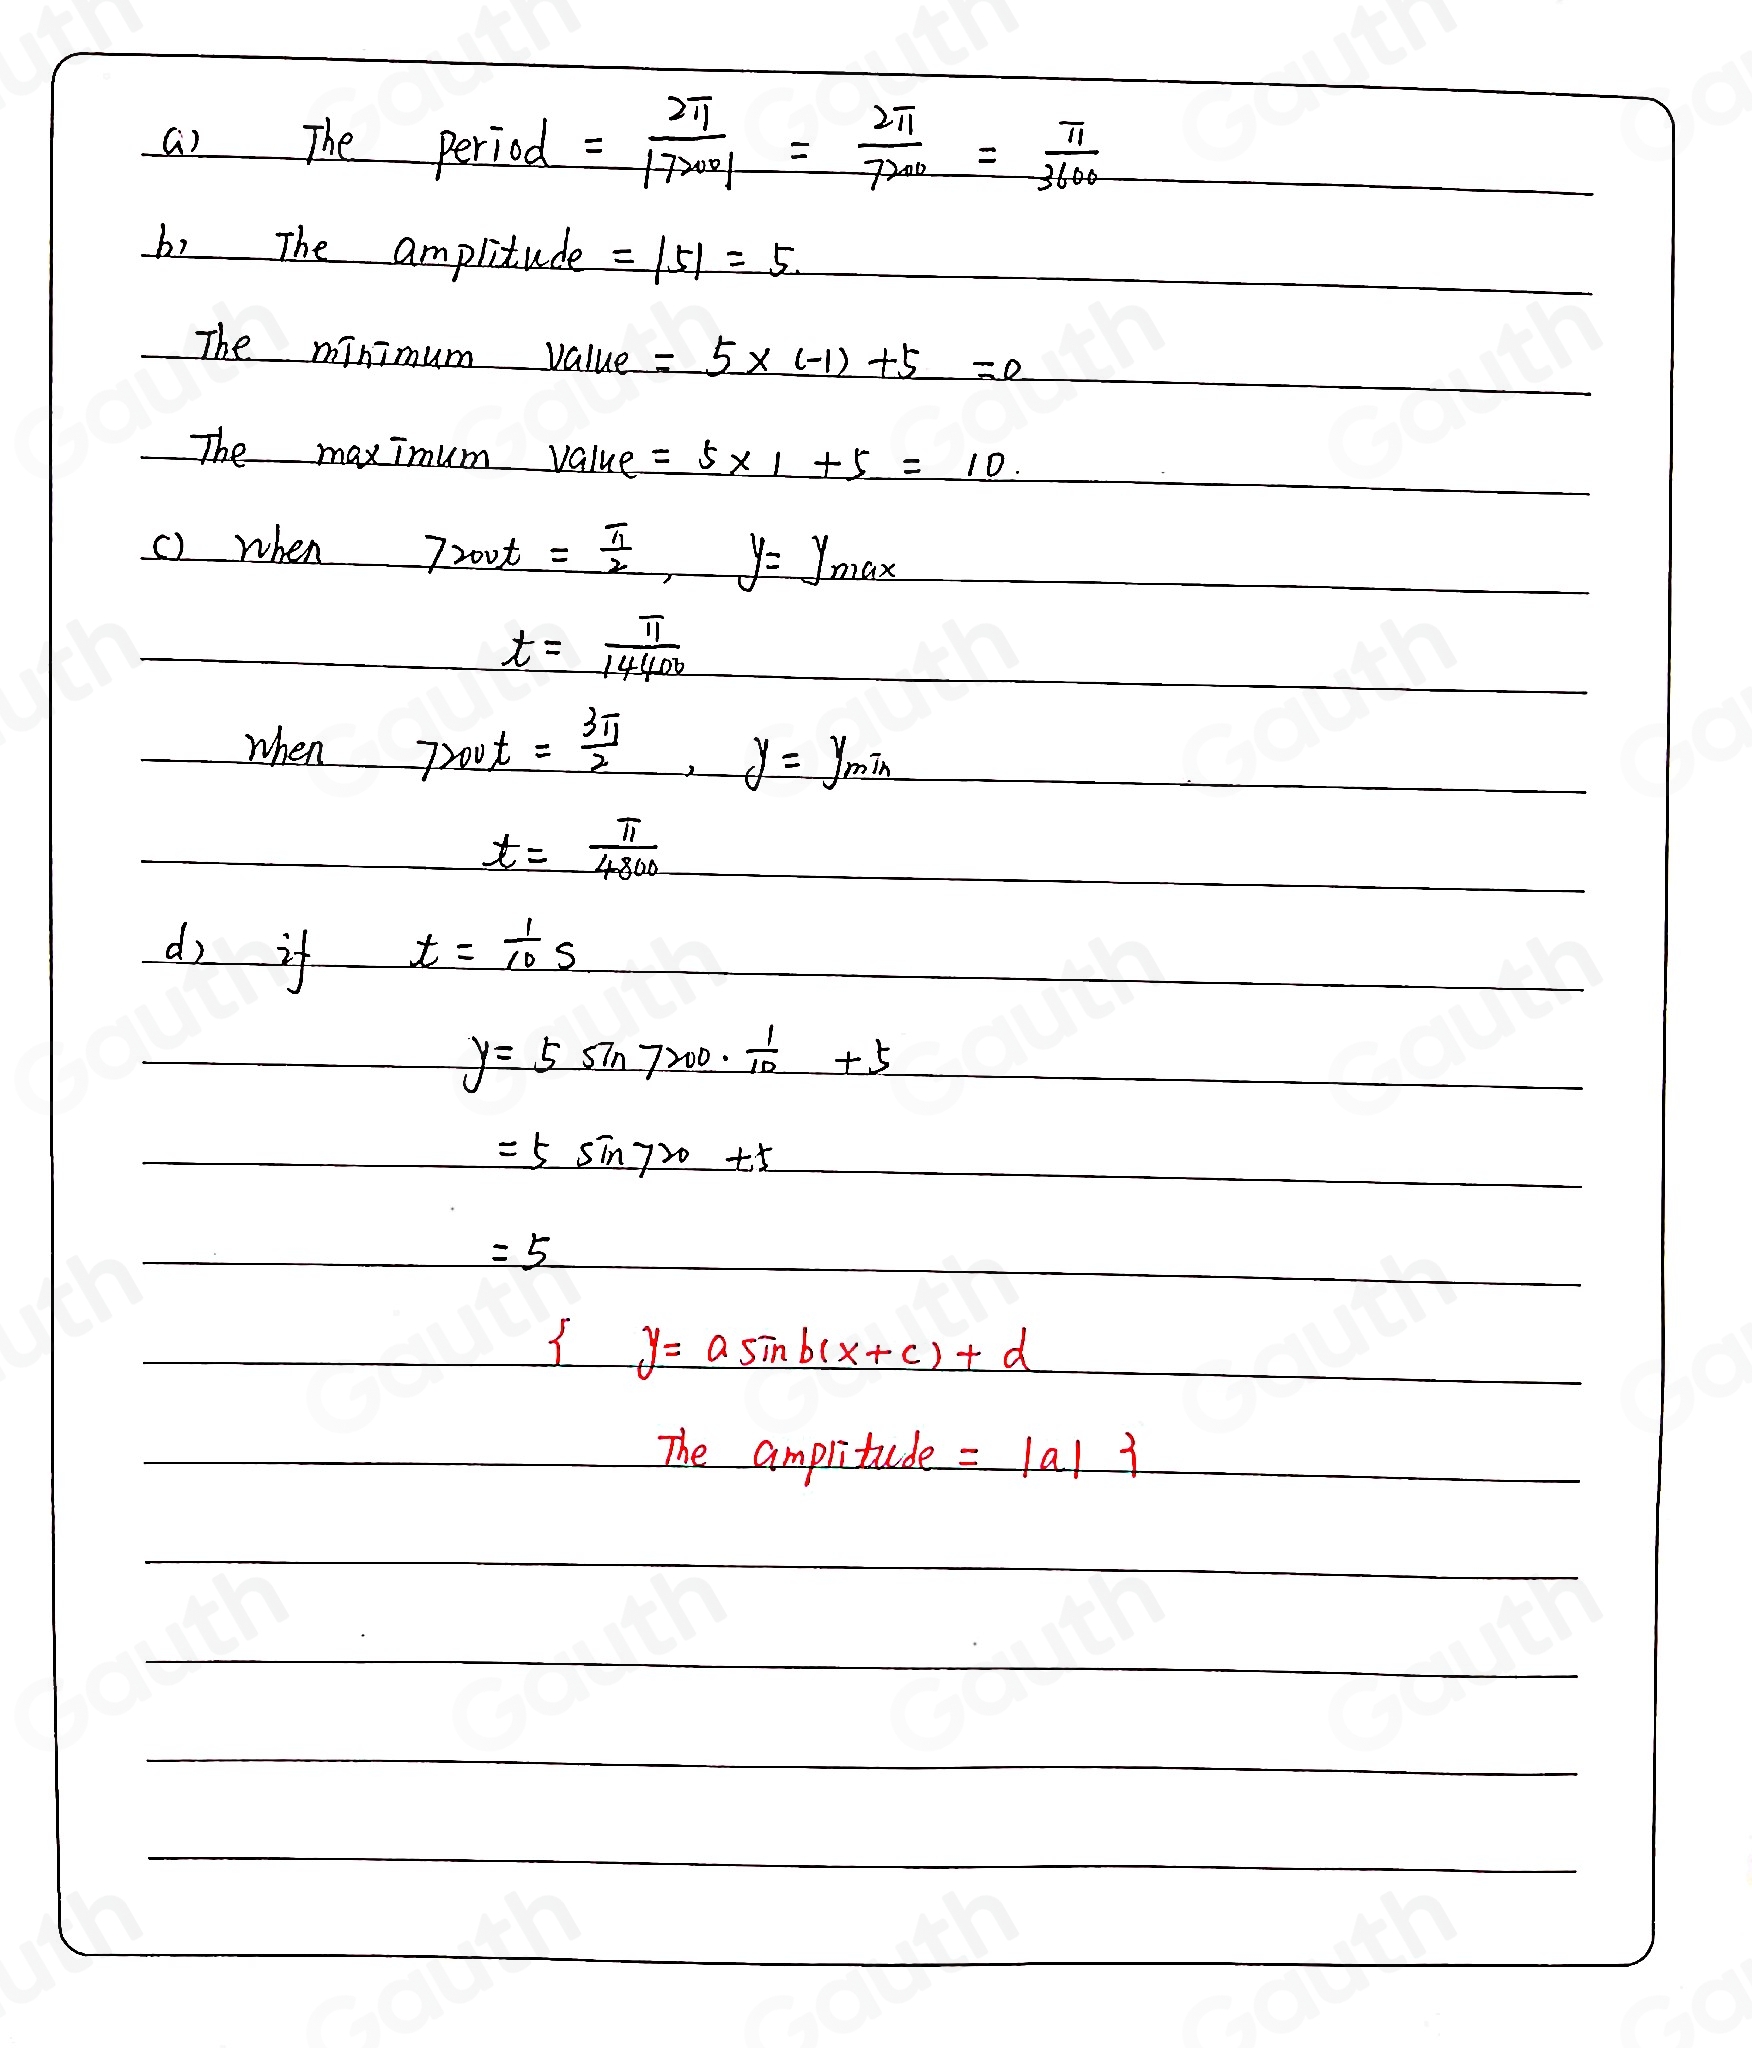 a) The period = 2π/|7200| = 2π/7200 = π/3600
b) The amplitude = |5| = 5.
The minimum value = 5 × (-1) + 5 = 0
The maximum value = 5 × 1 + 5 = 10.
c) when 7200t = π/2, y = ymax
t = π/14400
when 7200t = 3π/2, y = ymin
t = π/4800
d) if t = 1/10 s
y = 5 sin 7200 · 1/10 + 5
= 5 sin 720 + 5
= 5
{ y = a sin b(x + c) + d
The amplitude = |a| }